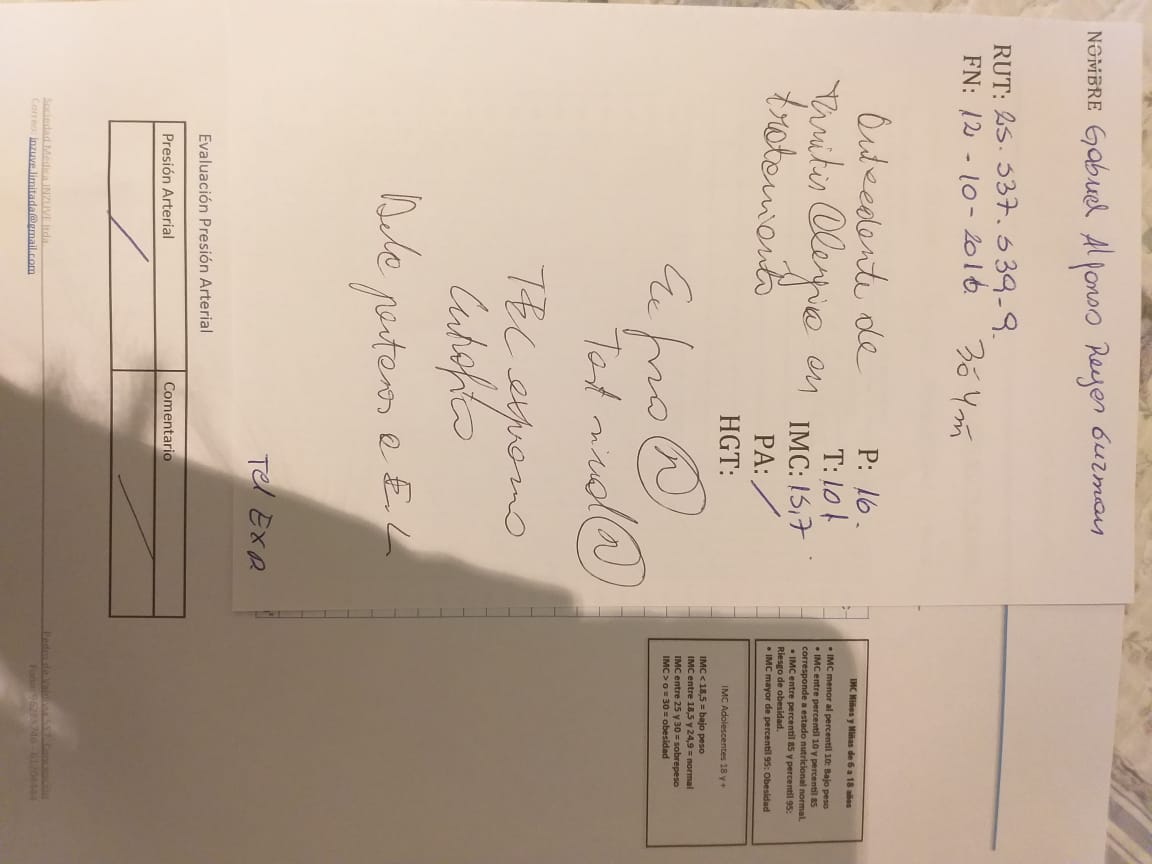 NOMBRE Gabriel Alfonso Reyes Guzman
RUT: 25.537.539-9.
FN: 12-10-2016. 3ā 4m̄
Antecedente de
Rinitis Alergica en
tratamiento
P: 16.
T: 101
IMC: 15,7
PA: /
HGT:
Ex fisico (N)
Test visual (N)
TEC
Eutrofico
a E.L
Tel EXP
IMC Niños y Niñas de 6 a 18 años
• IMC menor al percentil 10: Bajo peso
• IMC entre percentil 10 y percentil 85
corresponde a estado nutricional normal.
• IMC entre percentil 85 y percentil 95:
Riesgo de obesidad.
• IMC mayor de percentil 95: Obesidad
IMC Adolescentes 18 y +
IMC < 18,5 = bajo peso
IMC entre 18,5 y 24,9 = normal
IMC entre 25 y 30 = sobrepeso
IMC > o = 30 = obesidad
Evaluación Presión Arterial
Presión Arterial Comentario
Sociedad Médica INZUVE ltda.
Correo: inzuve.limitada@gmail.com
Pedro de Valdivia 557, Concepción